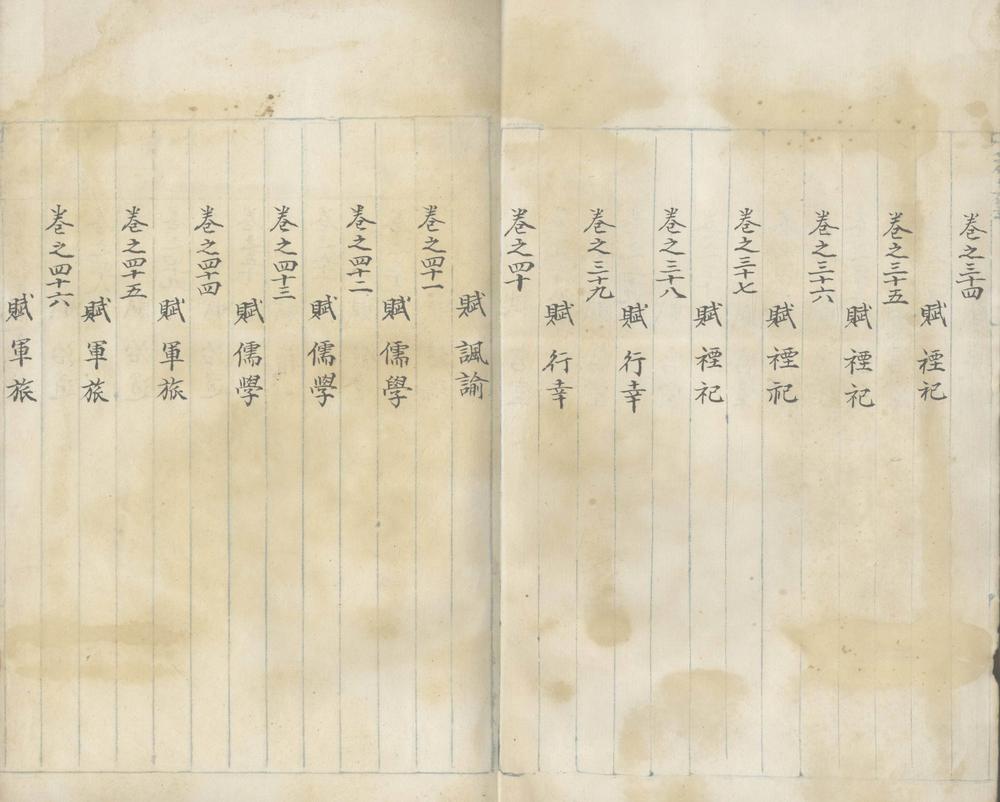 卷之三十四
賦 禋祀
卷之三十五
賦 禋祀
卷之三十六
賦 禋祀
卷之三十七
賦 禋祀
卷之三十八
賦 行幸
卷之三十九
賦 行幸
卷之四十
賦 諷諭
卷之四十一
賦 儒學
卷之四十二
賦 儒學
卷之四十三
賦 儒學
卷之四十四
賦 軍旅
卷之四十五
賦 軍旅
卷之四十六
賦 軍旅